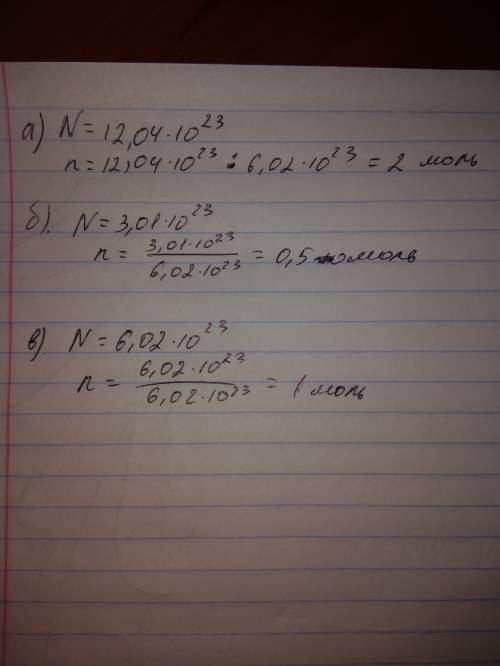 а) N = 12,04·10²³
n = 12,04·10²³ : 6,02·10²³ = 2 моль
б). N = 3,01·10²³
n = 3,01·10²³ / 6,02·10²³ = 0,5 моль
в) N = 6,02·10²³
n = 6,02·10²³ / 6,02·10²³ = 1 моль